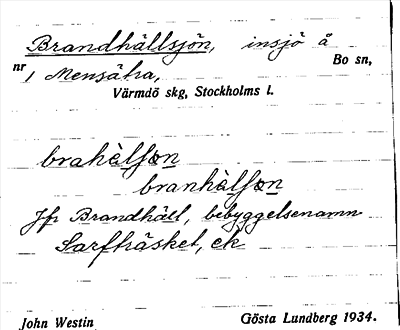 Brandhällsjön, insjö å Bo sn,
nr 1 Mensätra,
Värmdö skg, Stockholms l.
brahèlføn
branhèlføn
Jfr Brandhäll, bebyggelsenamn
Sarfträsket, ek
John Westin Gösta Lundberg 1934.